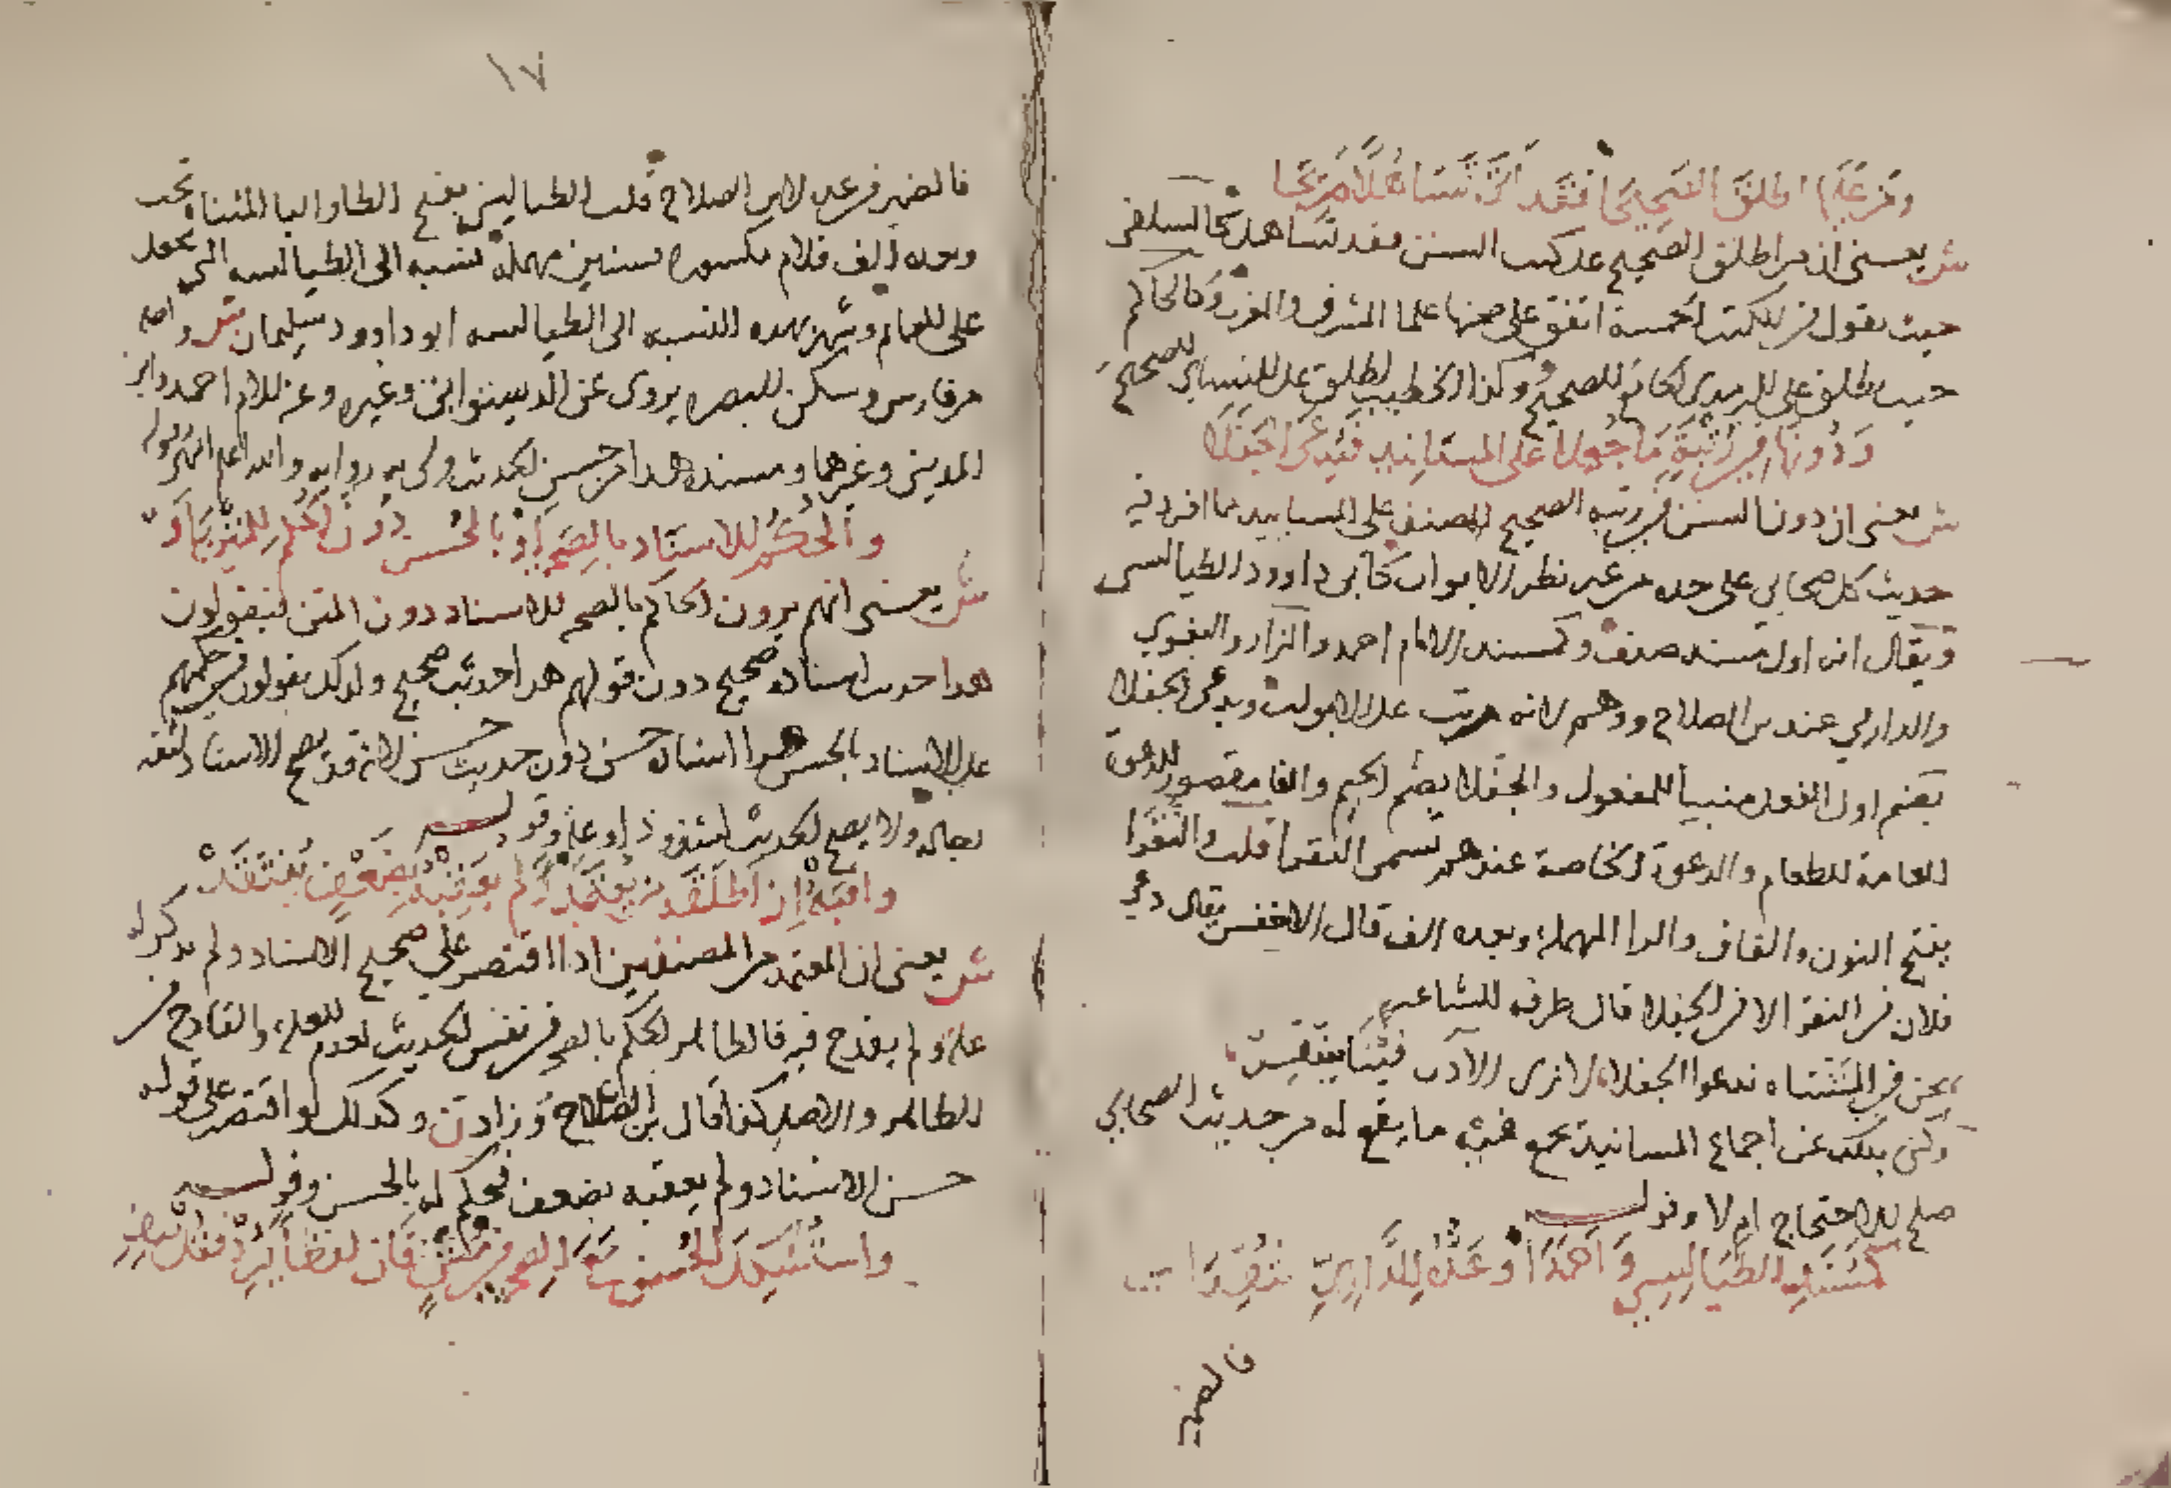 ومن عليها اطلق الصحيحا فقد اتى تساهلا صريحا
ش يعني ان من اطلق الصحيح على كتب السنن فقد تساهل كالسلفي
حيث يقول في الكتب الخمسة اتفق على صحتها علما المشرق والمغرب وكالحاكم
حيث يطلق على الترمدي الجامع الصحيح وكذا الخطيب يطلق على النسابي الصحيح
ودونها في رتبة ما جعلا على المسانيد فيدعى الجفلا
ش يعني ان دون السنن في رتبه الصحيح المصنف على المسانيد مما افرد فيه
حديث كل صحابي على حده من غير نظر الابواب كابي داوود الطيالسي
ويقال انه اول مسند صنف وكمسند الامام احمد والبزار والبغوي
والدارمي عند بن الصلاح ووهم لانه مرتب على الابواب ويدعى الجفلا
بضم اول الفعل مبنيا للمفعول والجفلا بضم الجيم والفا مقصور الدعوة
العامة للطعام والدعوة الخاصة عندهم تسمى النقرا قلت والنقرا
بفتح النون والقاف والرا المهملة وبعده الف قال الاخفش يقال دعي
فلان في النقرا لا في الجفلا قال طرفه الشاعر
نحن في المشتاه ندعوا الجفلا لا ترى الآدب فينا ينتقر
وكنى بذلك عن اجماع المسانيد بجمع فيه ما يقع له من حديث الصحابي
صلح للاحتجاج ام لا وقوله
كمسند الطيالسي واحمدا وعده للدارمي انتقدا
فالضمير
١٧
فالضمير في عده لابن الصلاح قلت الطيالسي بفتح الطا واليا المثناه تحت
وبعده الف فلام مكسوره فسين مهملة نسبه الى الطيالسه التي تجعل
على العمايم وشهر بهده النسبه الى الطيالسه ابو داوود سليمان واصله
من فارس وسكن البصره يروى عن الدستوائي وغيره وعنه الامام احمد وابن
المديني وغيرهما ومسنده هدا من حسن الحديث ولي به روايه والله اعلم قوله
والحكم للاسناد بالصحة او بالحسن دون الحكم للمتن راوا
ش يعني انهم يرون الحاكم بالصحه للاسناد دون المتن فيقولون
هدا حديث اسناده صحيح دون قولهم هدا حديث صحيح ولدلك يقولون في حكمهم
على الاسناد بالحسن هدا اسناده حسن دون حديث حسن لانه قد يصح الاسناد لثقه
رجاله ولا يصح الحديث لشذوذ او علة وقوله
واقبله ان اطلقه من يعتمد ولم يعقبه بضعف ينتقد
ش يعني ان المعتمد من المصنفين ادا اقتصر على صحيح الاسناد ولم يدكر له
علة ولم يقدح فيه فالظاهر الحكم بالصحه في نفس الحديث لعدم العلة والقادح في
الظاهر والاصل كذا قال بن الصلاح وزاد ن وكدلك لو اقتصر على قوله
حسن الاسناد ولم يعقبه بضعف فيحكم له بالحسن وقوله
واستشكل الحسن مع الصحة في متن فان لفظا يرد فقل صف